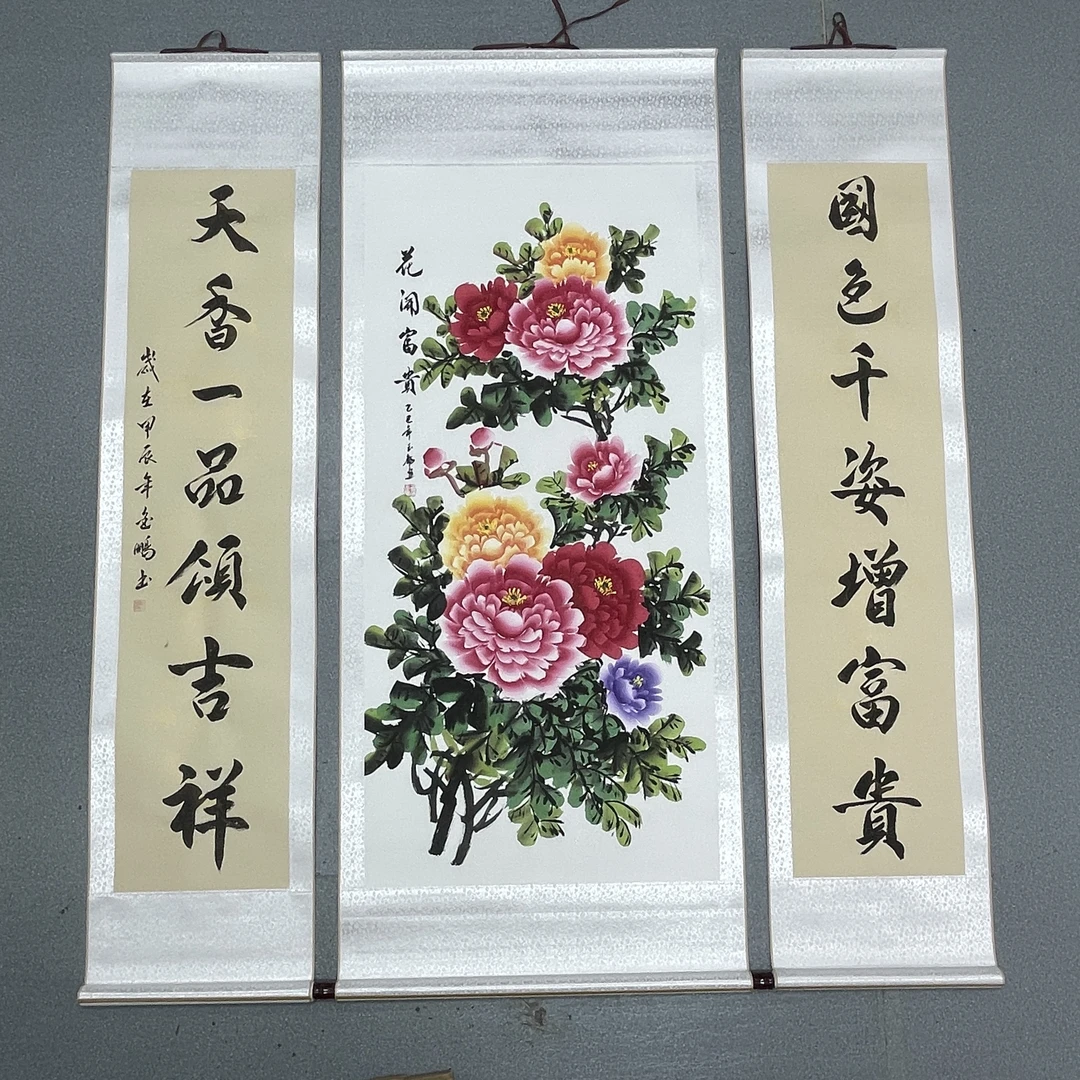 國色千姿增富貴
花開富貴
乙巳年
天香一品頌吉祥
歲在甲辰年金鵬书